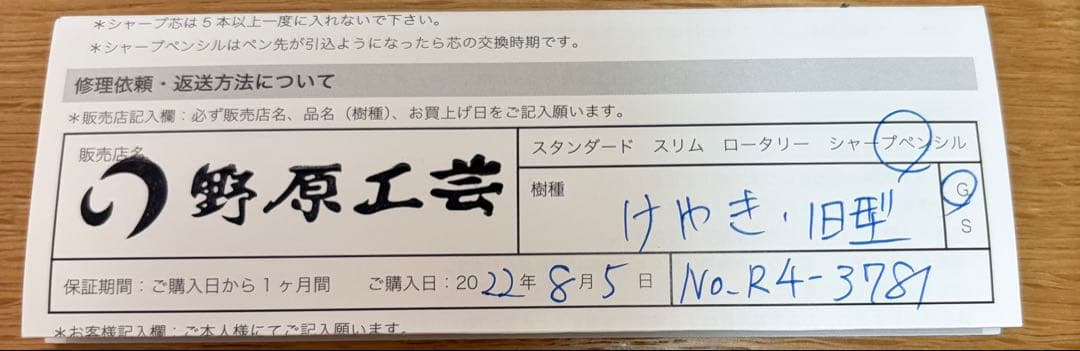 ＊シャープ芯は５本以上一度に入れないで下さい。
＊シャープペンシルはペン先が引込ようになったら芯の交換時期です。
修理依頼・返送方法について
＊販売店記入欄：必ず販売店名、品名（樹種）、お買上げ日をご記入願います。
販売店名
野原工芸
スタンダード スリム ロータリー シャープペンシル
樹種
けやき・旧型
G
S
保証期間：ご購入日から１ヶ月間 ご購入日：2022年8月5日
No.R4-3781
＊お客様記入欄：ご本人様にてご記入願います。